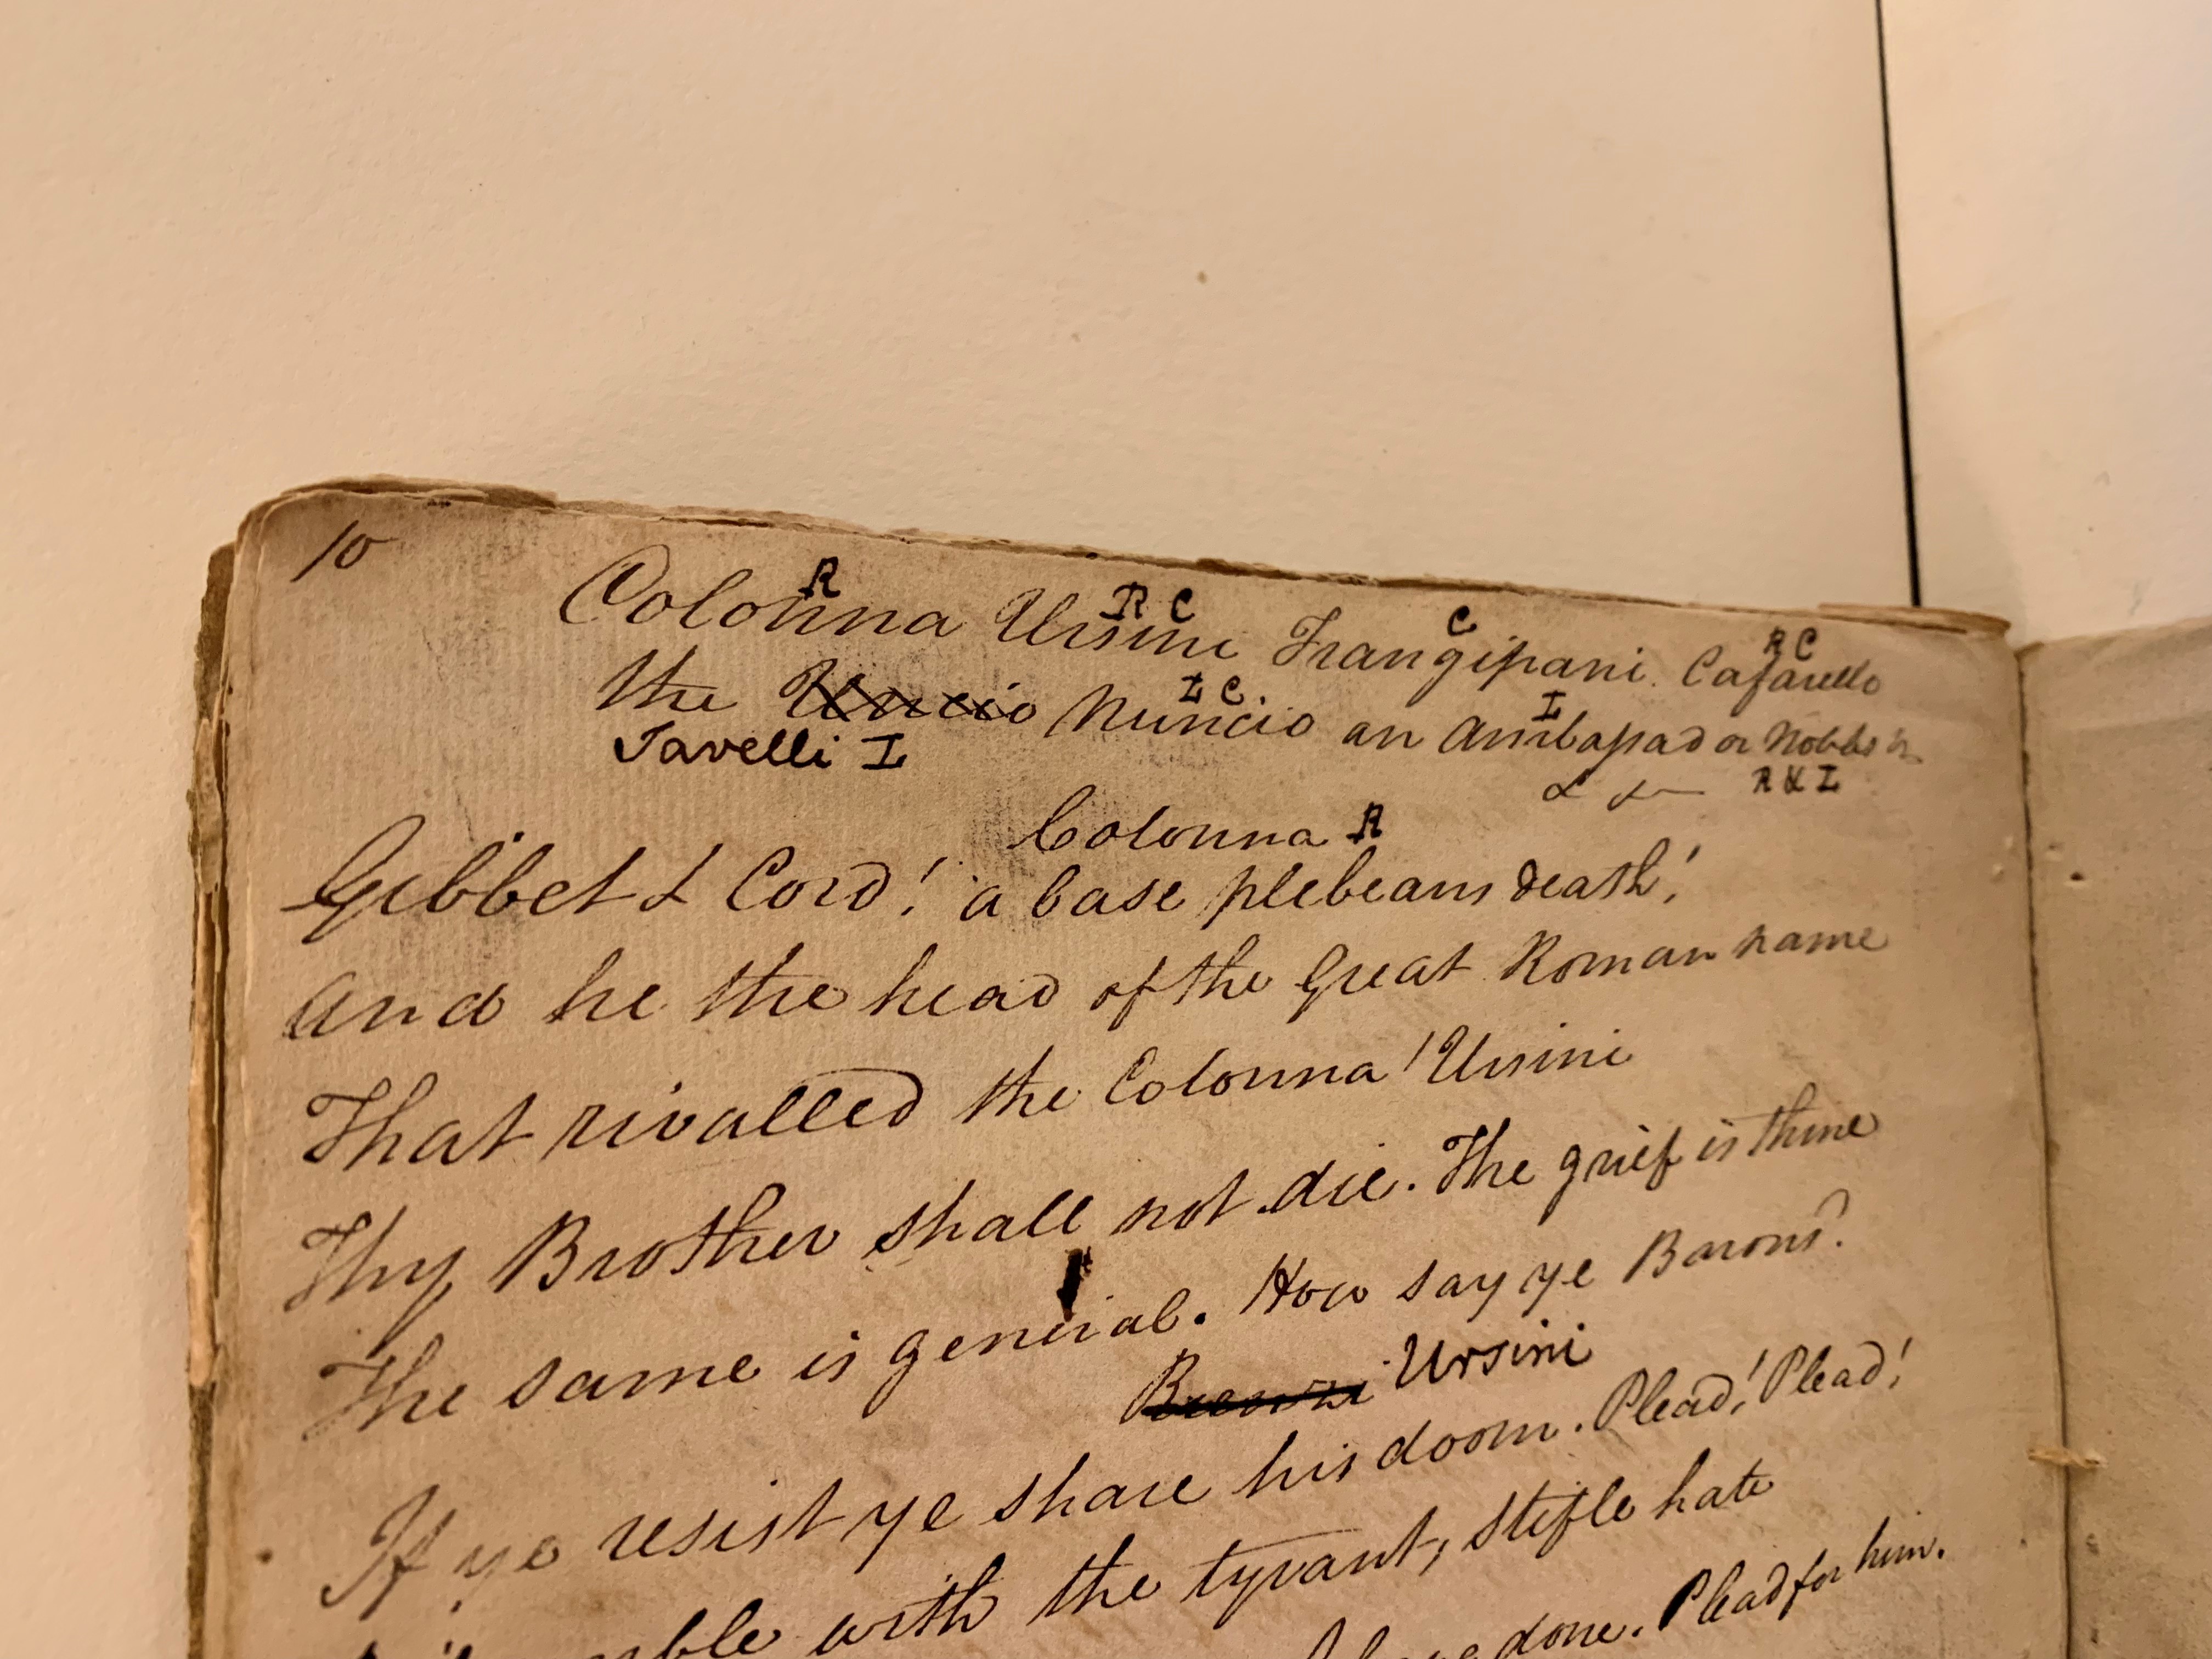 10
R R C C R C
Colonna Ursini Frangipani. Cafarello
L C I
the Nuncio an Ambassador Nobles
Savelli I & &c R & L
Colonna R
Gibbet & Cord! a base plebeians death!
And he the head of the Great Roman name
That rivalled the Colonna! Ursini
Thy Brother shall not die. The grief is thine
The same is general. How say ye Barons?
Ursini
If ye resist ye share his doom. Plead! Plead!
with the tyrant, stifle hate
done. Plead for him.